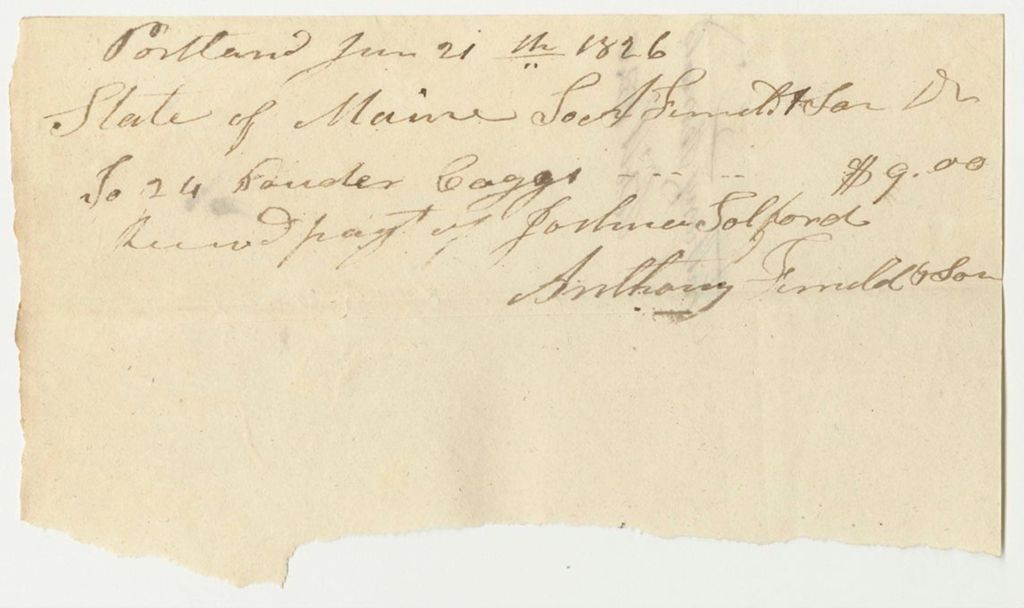 Portland Jun 21th 1826
State of Maine To A Fernald & Son Dr
To 24 Pouder Caggs - - - - - $9.00
Recived payt of Joshua Tolford
Anthony Fernald & Son